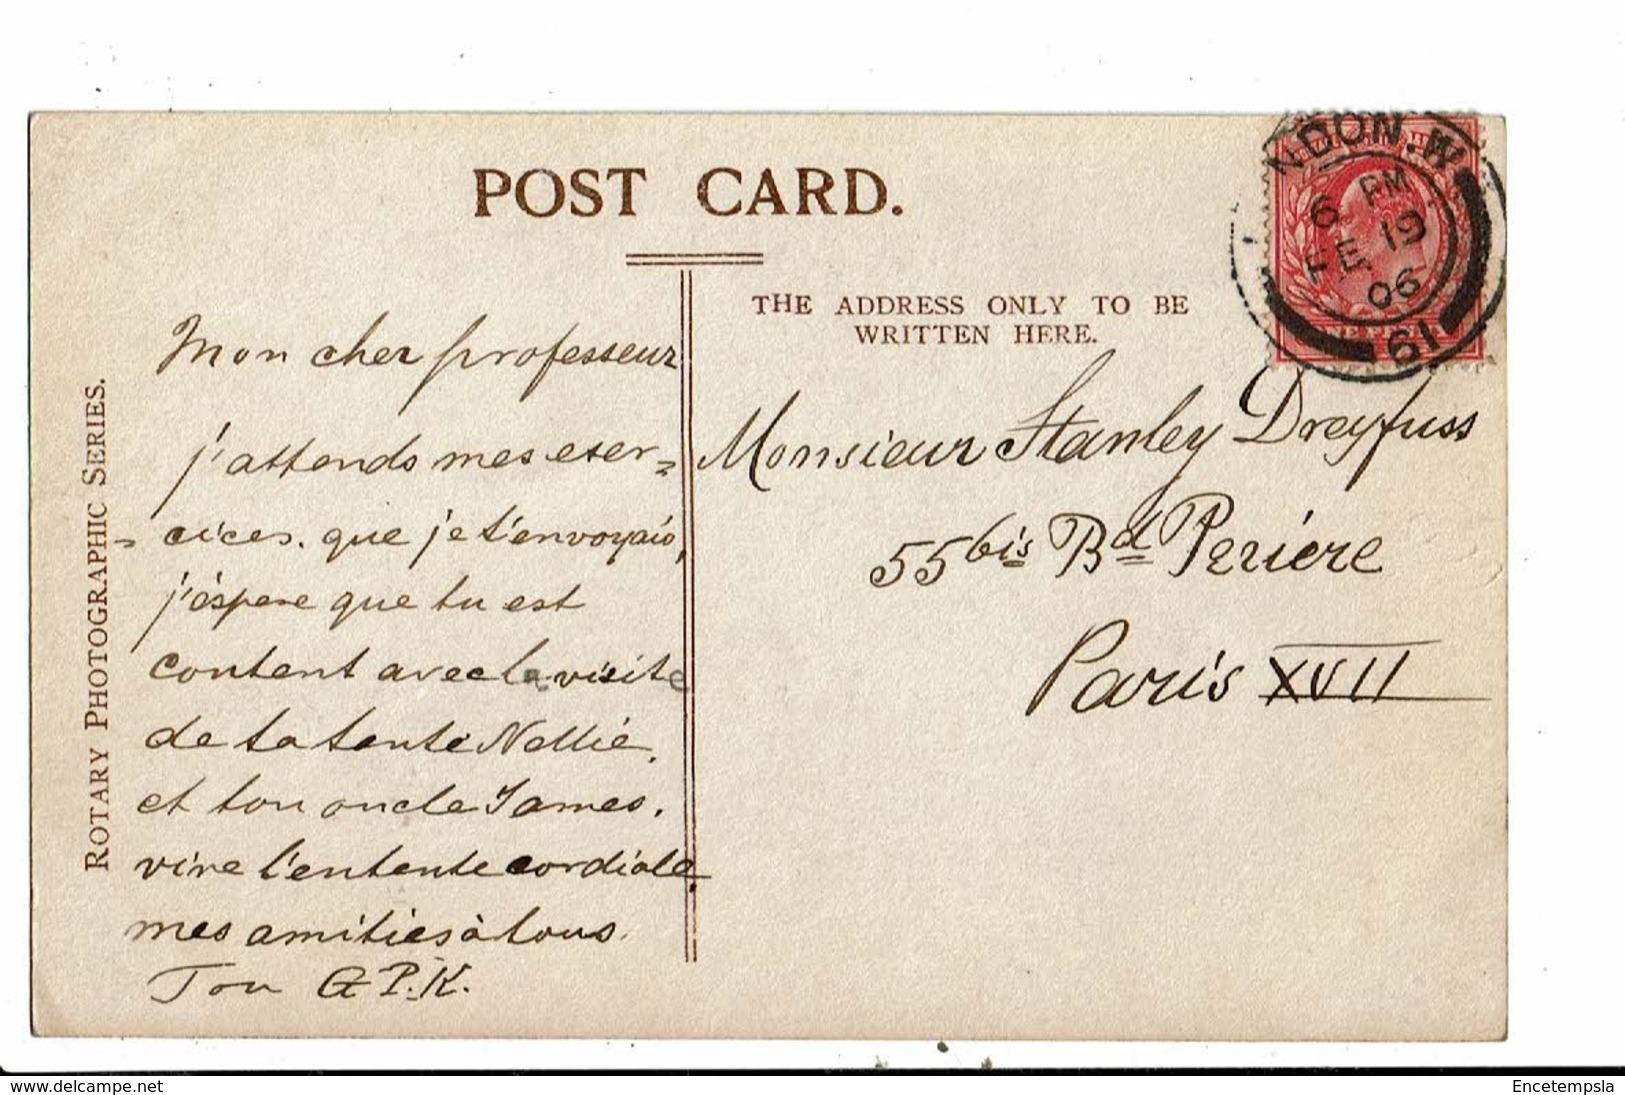 POST CARD.
THE ADDRESS ONLY TO BE
WRITTEN HERE.
ROTARY PHOTOGRAPHIC SERIES.
NDON.W
6 PM
FE 19
06
61
Mon cher professeur
j'attends mes exer=
= cices. que je t'envoyais,
j'éspere que tu est
content avec la visite
de ta tante Nellie.
et ton oncle James.
vive l'entente cordiale.
mes amitiés à tous.
Ton G P. K.
Monsieur Stanley Dreyfuss
55 bis Bd Periere
Paris XVII
www.delcampe.net
Encetempsla